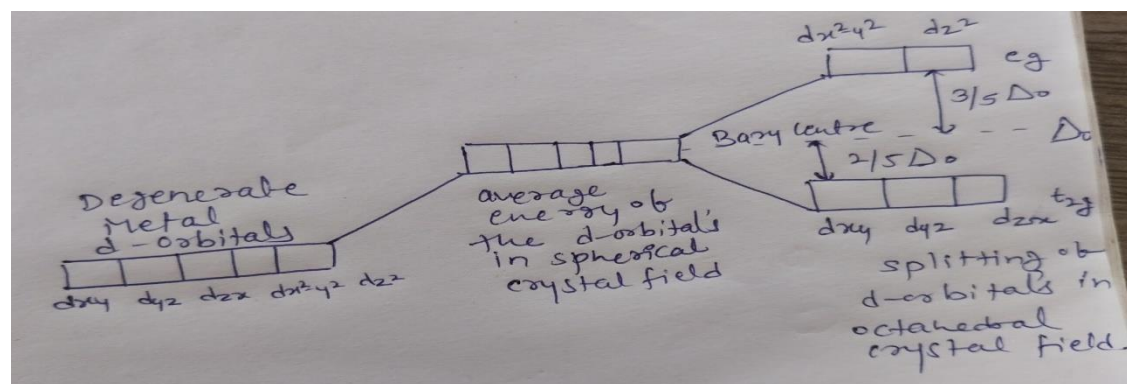 dx²y² dz²
eg
3/5 Δo
Bary centre
Δo
2/5 Δo
t2g
dxy dyz dzx
splitting of
d-orbitals in
octahedral
crystal field.
average
energy of
the d-orbital's
in spherical
crystal field
Degenerate
Metal
d-orbitals
dxy dyz dzx dx²y² dz²